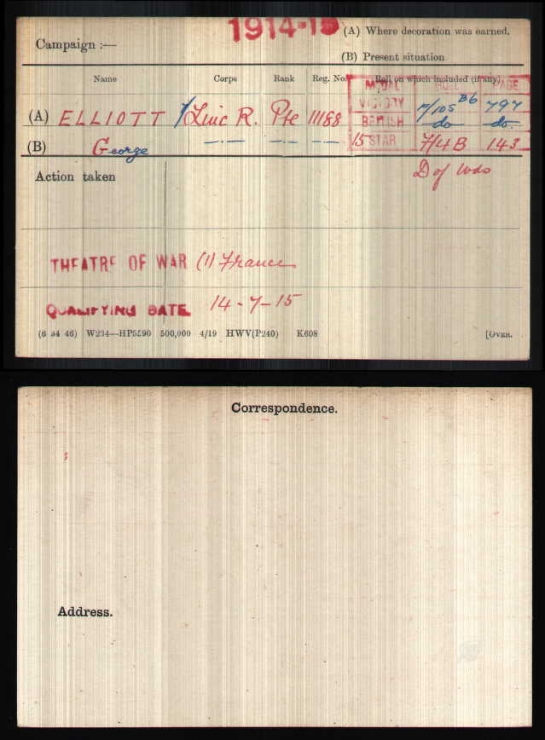 1914-15
Campaign :—
(A) Where decoration was earned.
(B) Present situation
Name Corps Rank Reg. No. Roll on which included (if any).
MEDAL ROLL PAGE
(A) ELLIOTT 7/Linc R. Pte 11188 VICTORY 7/105 B6 797
BRITISH do do.
(B) George —·— —·— —·— 15 STAR 7/4B 143
Action taken D of Wds
THEATRE OF WAR (1) France
QUALIFYING DATE 14-7-15
(6 34 46) W234—HP5590 500,000 4/19 HWV(P240) K608 [OVER.
Correspondence.
Address.